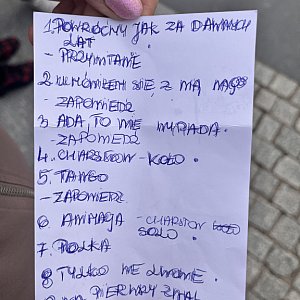 1. POWRÓĆMY JAK ZA DAWNYCH
LAT
- PRZYWITANIE
2. UMÓWIŁEM SIĘ Z NIĄ NA 9
- ZAPOWIEDŹ
3. ADA, TO NIE WYPADA.
- ZAPOWIEDŹ
4. CHARSTON - KOŁO.
5. TANGO
- ZAPOWIEDŹ
6 ANIMACJA - CHARSTON
SOLO.
7. POLKA
8 TYLKO NIE
PIERWSZY